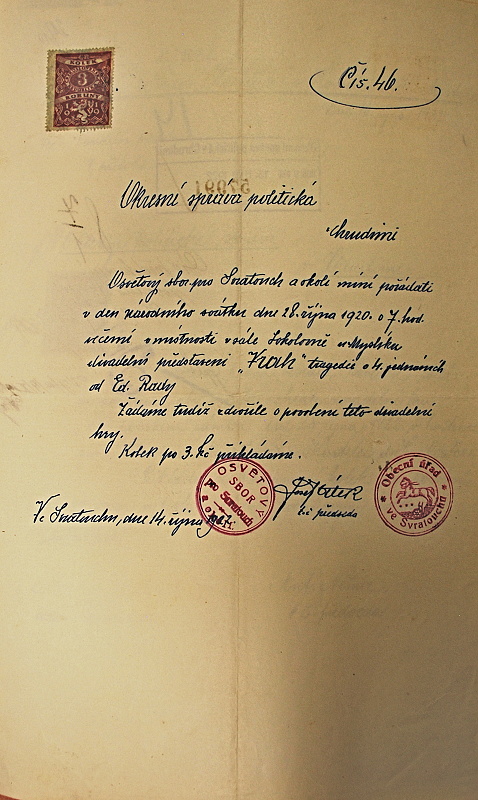 KOLEK
3
KORUNY
Čís. 46.
Okresní správa politická
Chrudimi
Osvětový sbor pro Svratouch a okolí míní pořádati
v den národního svátku dne 28. října 1920 o 7. hod.
večerní v místnosti v sále Sokolovně
divadelní představení „Vrah" tragedie o 4. jednáních
od Ed. Rady
Žádáme tudíž zdvořile o povolení této divadelní
hry.
Kolek po 3. Kč přikládáme.
OSVĚTOVÝ SBOR pro Svratouch
Josef
t.č. předseda
Obecní úřad ve Svratouchu
Ve Svratouchu, dne 14. října